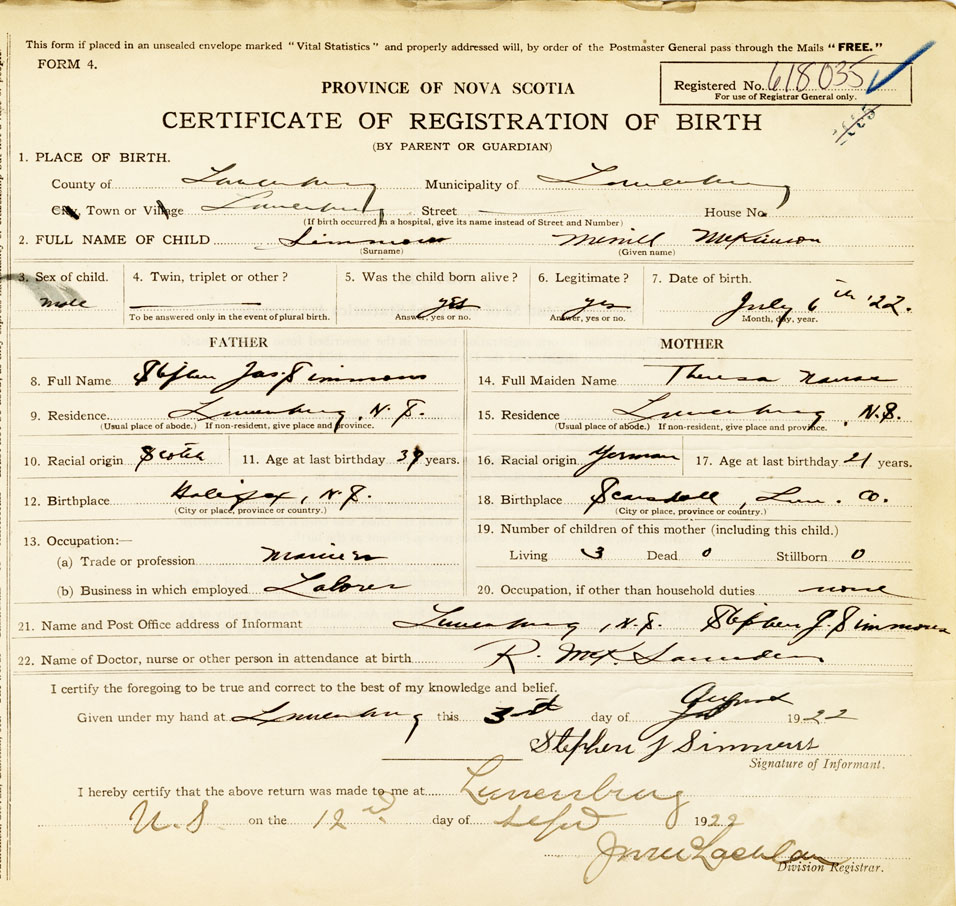 This form if placed in an unsealed envelope marked "Vital Statistics" and properly addressed will, by order of the Postmaster General pass through the Mails "FREE."
FORM 4.
Registered No. 618035
For use of Registrar General only.
PROVINCE OF NOVA SCOTIA
CERTIFICATE OF REGISTRATION OF BIRTH
(BY PARENT OR GUARDIAN)
1. PLACE OF BIRTH.
County of Lunenburg Municipality of Lunenburg
City, Town or Village Lunenburg Street House No.
(If birth occurred in a hospital, give its name instead of Street and Number)
2. FULL NAME OF CHILD Simmons Merrill McKinnon
(Surname) (Given name)
3. Sex of child. 4. Twin, triplet or other? 5. Was the child born alive? 6. Legitimate? 7. Date of birth.
Male yes yes July 6th '22.
To be answered only in the event of plural birth. Answer, yes or no. Answer, yes or no. Month, day, year.
FATHER MOTHER
8. Full Name Stephen Jas. Simmons 14. Full Maiden Name Theresa
9. Residence Lunenburg, N.S. 15. Residence Lunenburg, N.S.
(Usual place of abode.) If non-resident, give place and province. (Usual place of abode.) If non-resident, give place and province.
10. Racial origin Scotch 11. Age at last birthday years. 16. Racial origin German 17. Age at last birthday 21 years.
12. Birthplace Halifax, N.S. 18. Birthplace Lun. Co.
(City or place, province or country.) (City or place, province or country.)
19. Number of children of this mother (including this child.)
13. Occupation:—
(a) Trade or profession Living 3 Dead 0 Stillborn 0
(b) Business in which employed Laborer 20. Occupation, if other than household duties none
21. Name and Post Office address of Informant Lunenburg, N.S. Stephen J. Simmons
22. Name of Doctor, nurse or other person in attendance at birth R. McK. Saunders
I certify the foregoing to be true and correct to the best of my knowledge and belief.
Given under my hand at Lunenburg this day of August 1922
Stephen J Simmons
Signature of Informant.
I hereby certify that the above return was made to me at Lunenburg
N.S on the 12nd day of Sept 1922
Division Registrar.